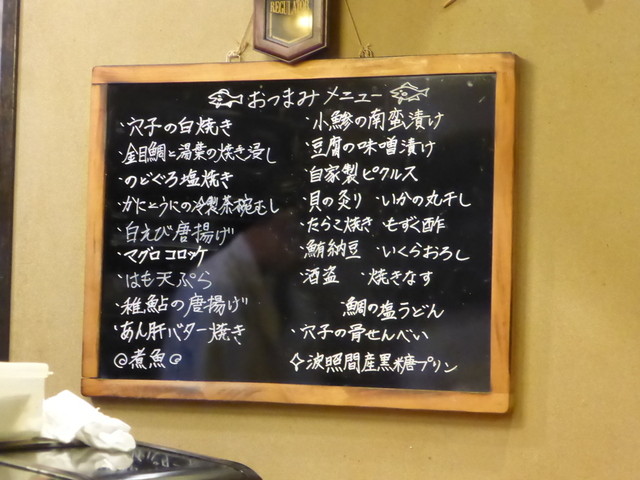 REGULATOR
おつまみメニュー
・穴子の白焼き
・金目鯛と湯葉の焼き浸し
・のどぐろ塩焼き
・かにとうにの冷製茶碗むし
・白えび唐揚げ
・マグロコロッケ
・はも天ぷら
・稚鮎の唐揚げ
・あん肝バター焼き
◎煮魚
・小鯵の南蛮漬け
・豆腐の味噌漬け
・自家製ピクルス
・貝の炙り ・いかの丸干し
・たらこ焼き ・もずく酢
・鮪納豆 ・いくらおろし
・酒盗 ・焼きなす
・鯛の塩うどん
・穴子の骨せんべい
✧波照間産黒糖プリン